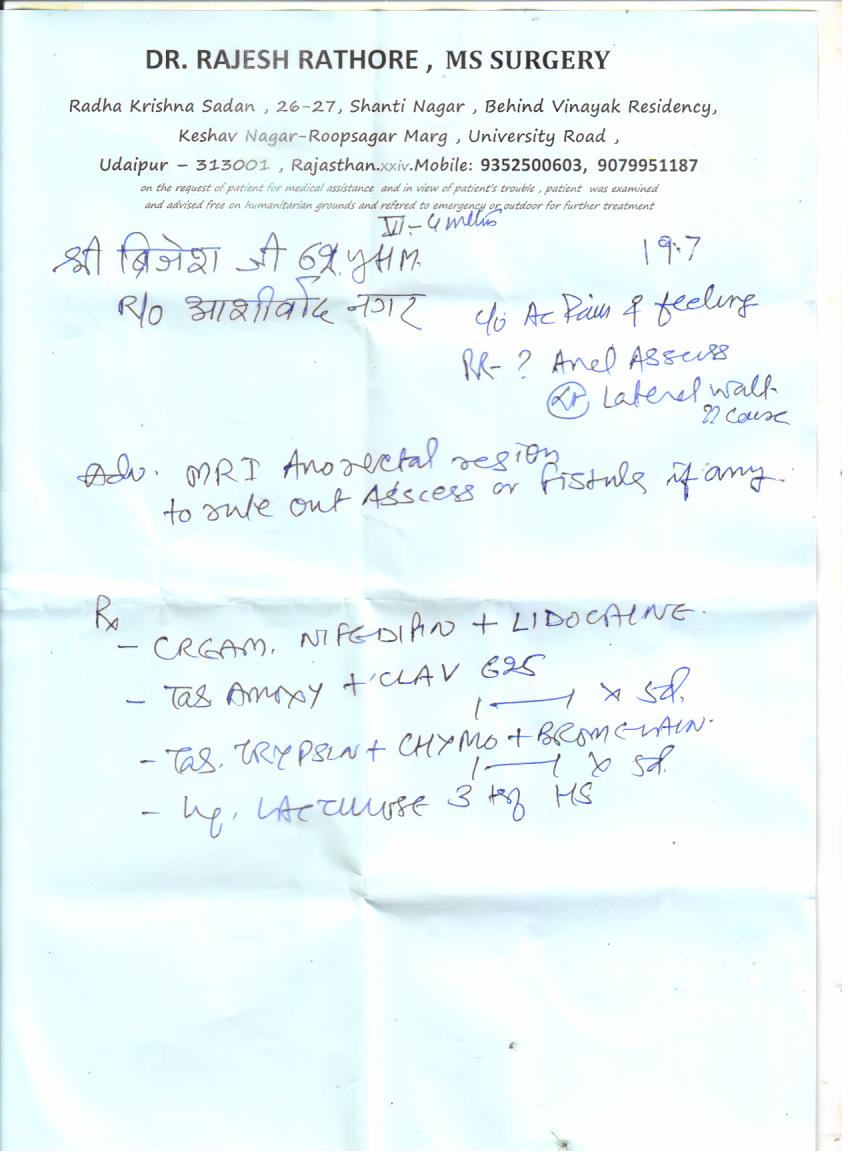 DR. RAJESH RATHORE , MS SURGERY
Radha Krishna Sadan , 26-27, Shanti Nagar , Behind Vinayak Residency,
Keshav Nagar-Roopsagar Marg , University Road ,
Udaipur – 313001 , Rajasthan.xxiv.Mobile: 9352500603, 9079951187
on the request of patient for medical assistance and in view of patient's trouble , patient was examined
and advised free on humanitarian grounds and refered to emergency or outdoor for further treatment
VI - 4
श्री ब्रिजेश जी 62 y HM. 19.7
R/o आशीर्वाद नगर
c/o Ac Pain & feeling
PR- ? Anel Asscess
Lateral wall
?? cause
Adv. MRI Anorectal region
to rule out Asscess or fistula if any.
Rx
- CREAM. NIFEDIPIN + LIDOCAINE.
- Tab AMOXY + CLAV 625
1 — 1 x 5d.
- Tab. TRYPSIN + CHYMO + BROMELAIN.
1 — 1 x 5d.
- Liq. LACTULOSE 3 tsf HS